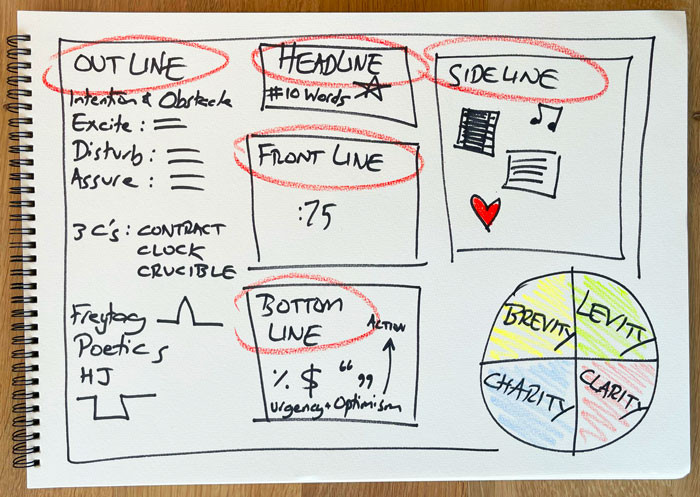 OUTLINE
Intention & Obstacle
Excite :
Disturb :
Assure :
3 C's : CONTRACT
CLOCK
CRUCIBLE
Freytag
Poetics
HJ
HEADLINE
#10 Words
FRONT LINE
:75
BOTTOM
LINE
ACTION
% $ " "
Urgency + Optimism
SIDELINE
BREVITY
LEVITY
CHARITY
CLARITY